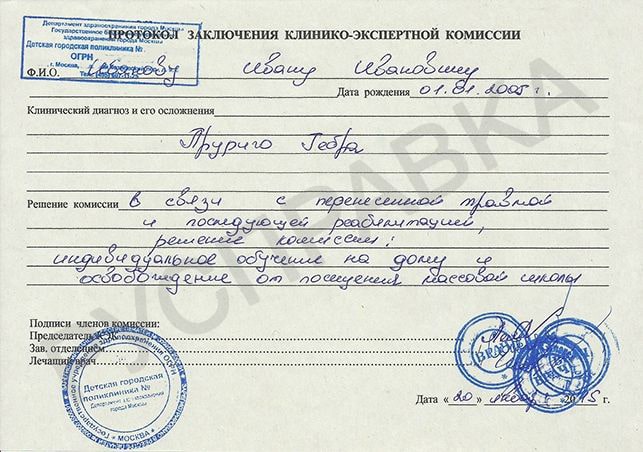 ПРОТОКОЛ ЗАКЛЮЧЕНИЯ КЛИНИКО-ЭКСПЕРТНОЙ КОМИССИИ
Департамент здравоохранения города Москвы
Государственное
здравоохранения города Москвы
Детская городская поликлиника №
ОГРН
г. Москва,
Ф.И.О. Иванову Ивану Ивановичу
Дата рождения 01.01.2005г.
Клинический диагноз и его осложнения
Пруриго Гебра
Решение комиссии в связи с перенесенной травмой
и последующей реабилитацией,
решение комиссии:
индивидуальное обучение на дому и
освобождение от посещения массовой школы
УСПРАВКА
Подписи членов комиссии:
Председатель КЭК
Зав. отделением
Лечащий врач
Детская городская
поликлиника №
Департамент здравоохранения
города Москвы
* МОСКВА *
ВРАЧ
Дата «20» 2015 г.